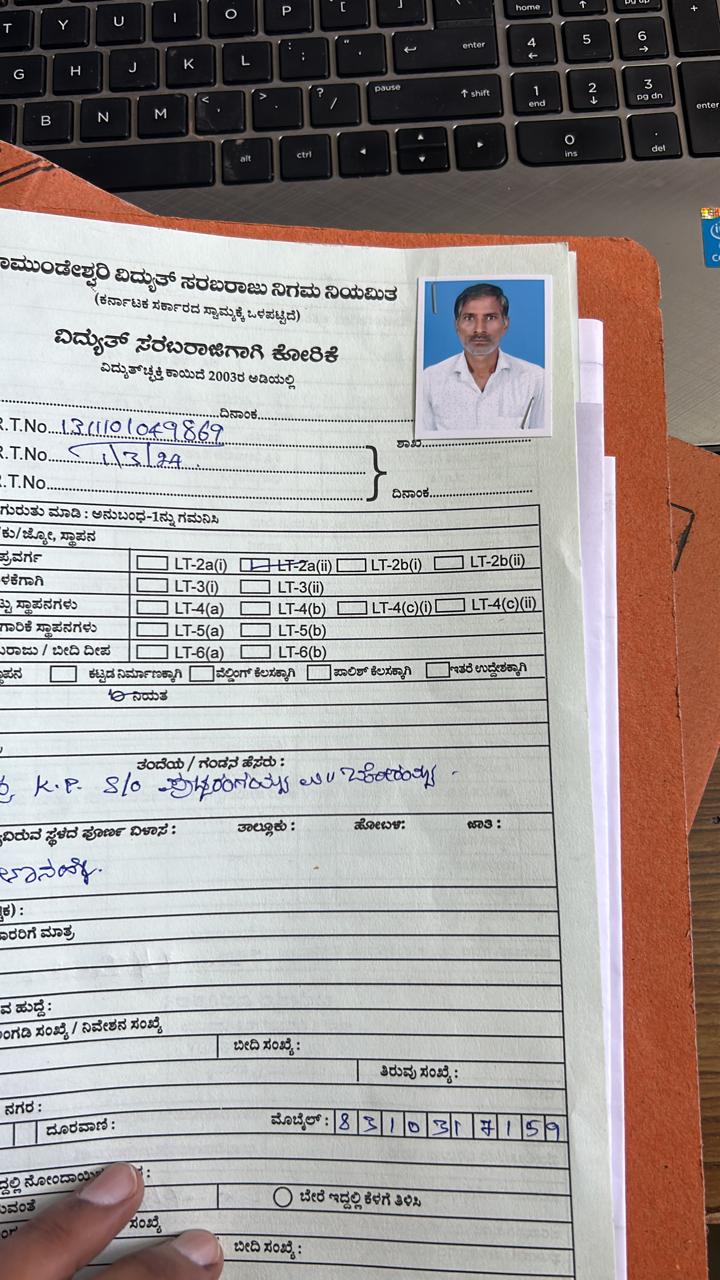 T Y U I O P [ ] home ↑ pg up +
G H J K L : ; " ' enter 4 ← 5 6 →
B N M < , > . ? / pause ↑ shift 1 end 2 ↓ 3 pg dn enter
alt ctrl 0 ins . del
ಾಮುಂಡೇಶ್ವರಿ ವಿದ್ಯುತ್ ಸರಬರಾಜು ನಿಗಮ ನಿಯಮಿತ
(ಕರ್ನಾಟಕ ಸರ್ಕಾರದ ಸ್ವಾಮ್ಯಕ್ಕೆ ಒಳಪಟ್ಟಿದೆ)
ವಿದ್ಯುತ್ ಸರಬರಾಜಿಗಾಗಿ ಕೋರಿಕೆ
ವಿದ್ಯುತ್‌ಚ್ಛಕ್ತಿ ಕಾಯಿದೆ 2003ರ ಅಡಿಯಲ್ಲಿ
ದಿನಾಂಕ
R.T.No. 1311101049869 ಶಾಖೆ
R.T.No. 1/3/24
R.T.No. ದಿನಾಂಕ
ಗುರುತು ಮಾಡಿ : ಅನುಬಂಧ-1ನ್ನು ಗಮನಿಸಿ
ಕು/ಜ್ಯೋ, ಸ್ಥಾಪನ
ಪ್ರವರ್ಗ LT-2a(i) LT-2a(ii) LT-2b(i) LT-2b(ii)
ಳಕೆಗಾಗಿ LT-3(i) LT-3(ii)
ಟ್ಟು ಸ್ಥಾಪನಗಳು LT-4(a) LT-4(b) LT-4(c)(i) LT-4(c)(ii)
ಗಾರಿಕೆ ಸ್ಥಾಪನಗಳು LT-5(a) LT-5(b)
ಬರಾಜು / ಬೀದಿ ದೀಪ LT-6(a) LT-6(b)
ಾಪನ ಕಟ್ಟಡ ನಿರ್ಮಾಣಕ್ಕಾಗಿ ವೆಲ್ಡಿಂಗ್ ಕೆಲಸಕ್ಕಾಗಿ ಪಾಲಿಶ್ ಕೆಲಸಕ್ಕಾಗಿ ಇತರೆ ಉದ್ದೇಶಕ್ಕಾಗಿ
ನಿಯತ
ತಂದೆಯ / ಗಂಡನ ಹೆಸರು :
K.P. S/o
ವಿರುವ ಸ್ಥಳದ ಪೂರ್ಣ ವಿಳಾಸ : ತಾಲ್ಲೂಕು : ಹೋಬಳಿ: ಜಾತಿ :
ಾರರಿಗೆ ಮಾತ್ರ
ವ ಹುದ್ದೆ:
ಂಗಡಿ ಸಂಖ್ಯೆ / ನಿವೇಶನ ಸಂಖ್ಯೆ
ಬೀದಿ ಸಂಖ್ಯೆ :
ತಿರುವು ಸಂಖ್ಯೆ :
ನಗರ :
ದೂರವಾಣಿ: ಮೊಬೈಲ್ : 8310317159
ದ್ದಲ್ಲಿ ನೋಂದಾಯಿ
ುವಂತೆ ಬೇರೆ ಇದ್ದಲ್ಲಿ ಕೆಳಗೆ ತಿಳಿಸಿ
ಸಂಖ್ಯೆ
ಬೀದಿ ಸಂಖ್ಯೆ :